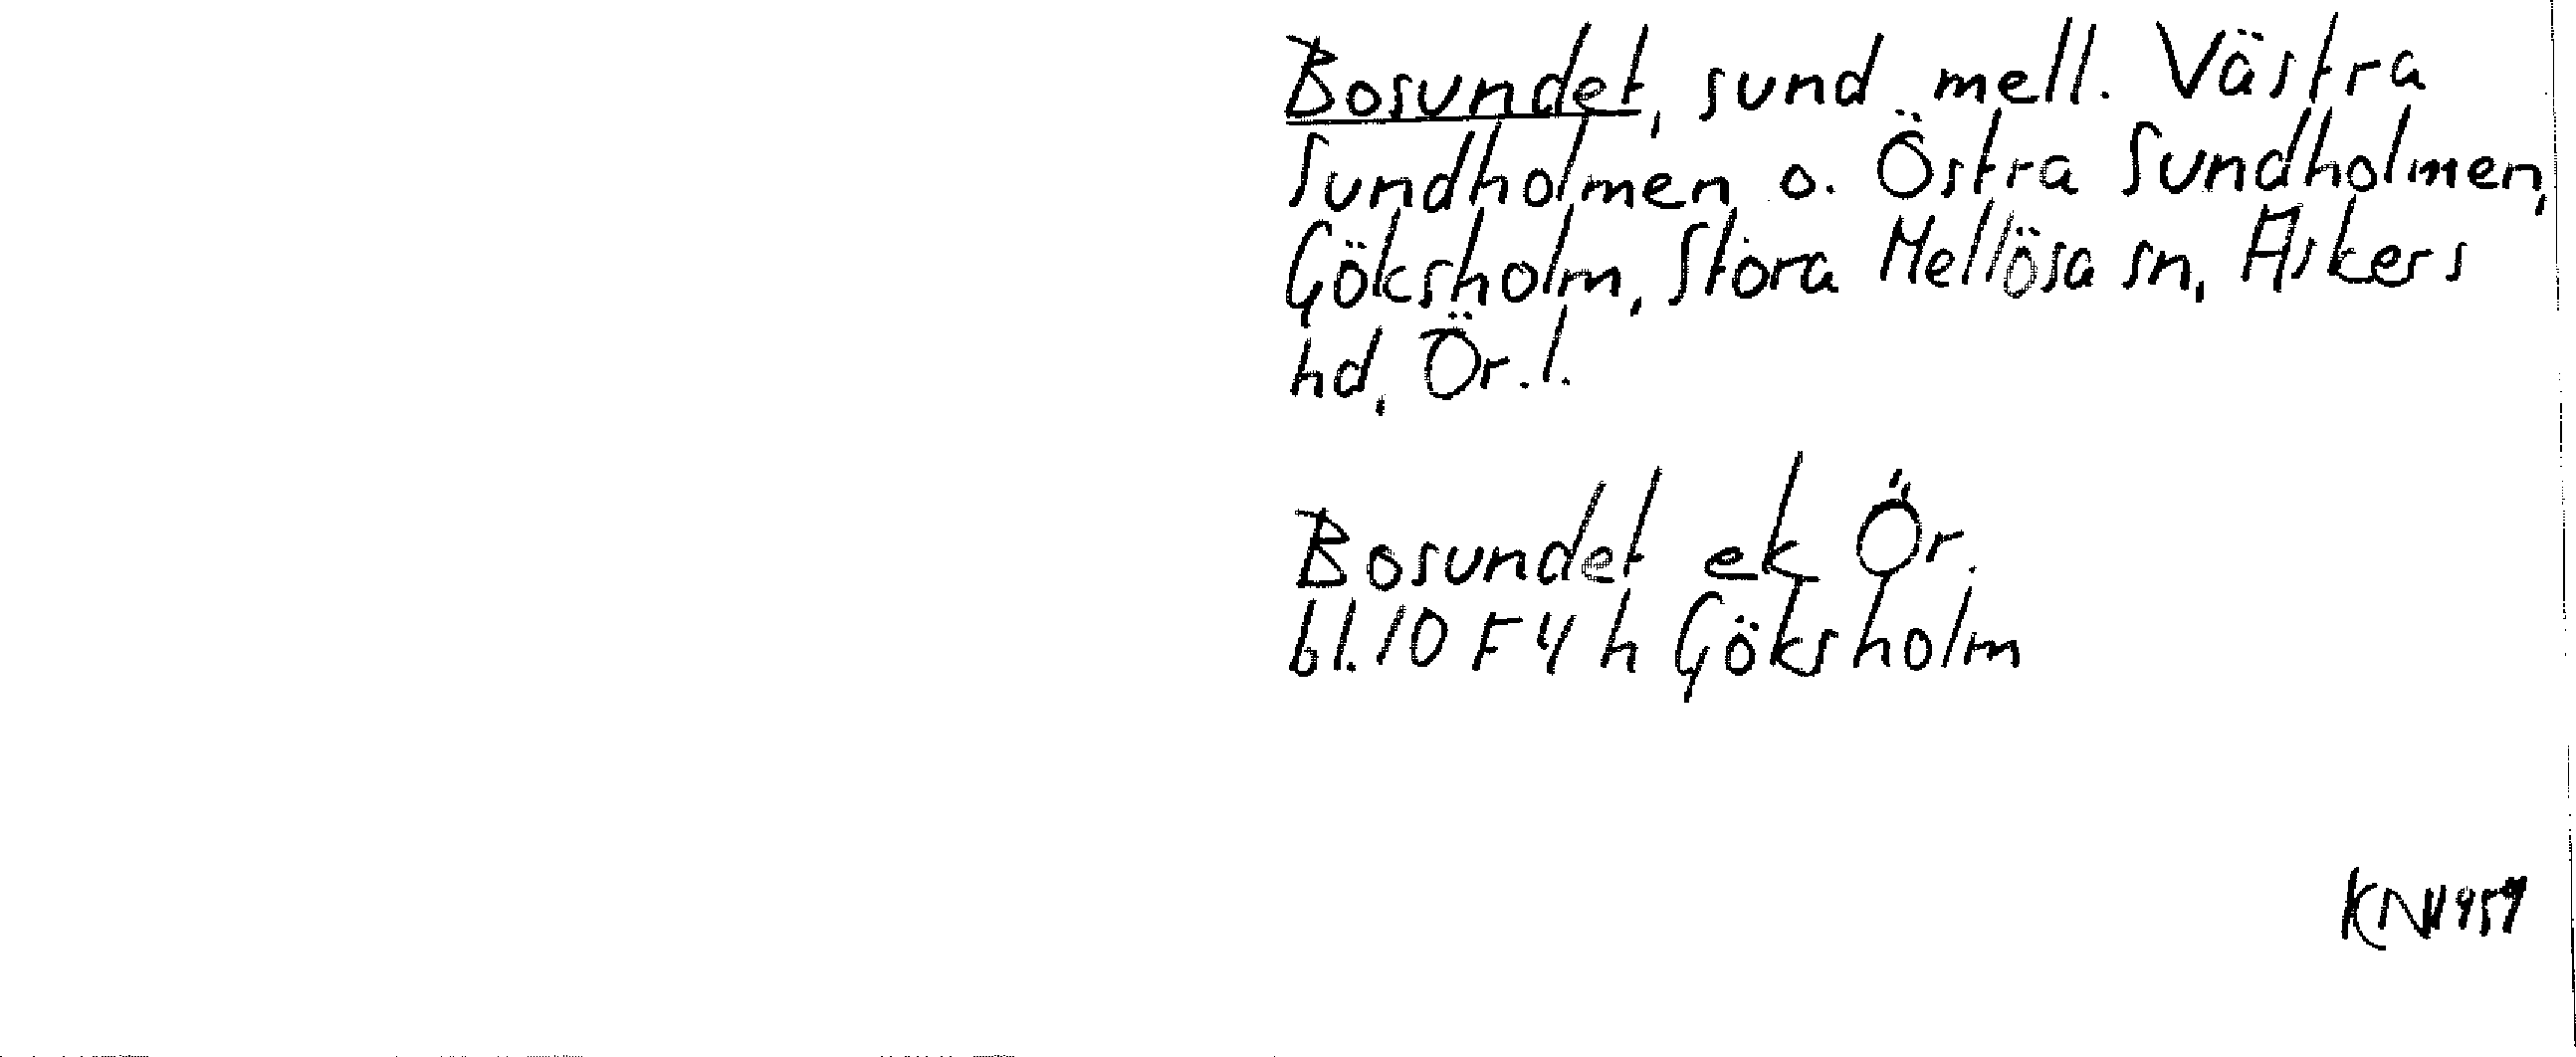 Bosundet, sund mell. Västra
Sundholmen o. Östra Sundholmen,
Göksholm, Stora Mellösa sn, Askers
hd, Ör. l.
Bosundet ek Ör.
bl. 10 F 4 h Göksholm